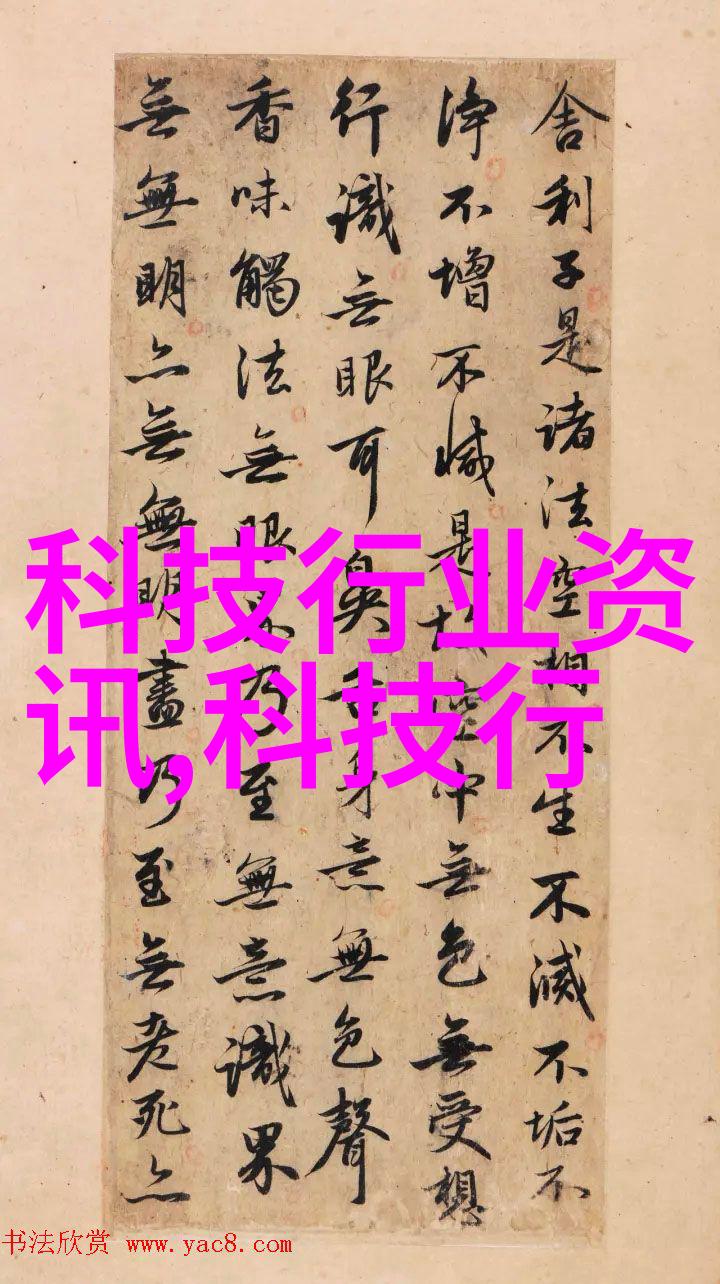 舍利子是諸法空相不生不滅不垢不
淨不增不減是故空中無色無受想
行識無眼耳鼻舌身意無色聲
香味觸法無眼界乃至無意識界
無無明亦無無明盡乃至無老死亦
科技行业资
讯,科技行
书法欣赏 www.yac8.com